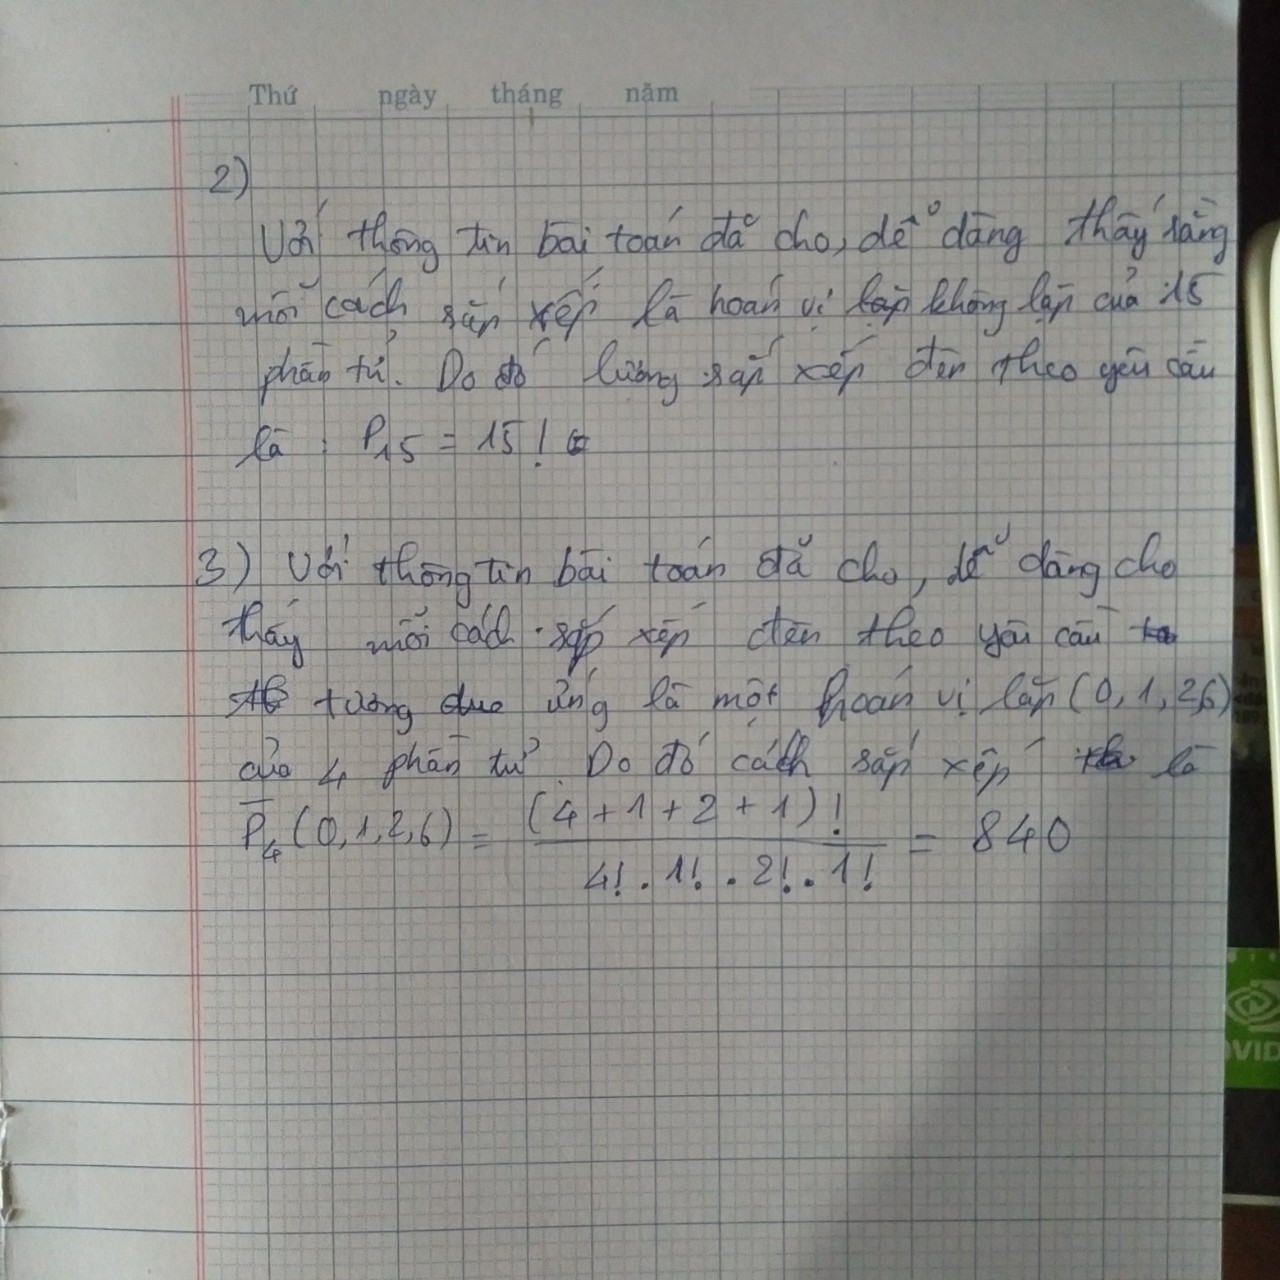 Thứ ngày tháng năm
2)
Với thông tin bài toán đã cho, dễ dàng thấy rằng
mỗi cách sắp xếp là hoán vị lặp không lặp của 15
phần tử. Do đó lượng sắp xếp đèn theo yêu cầu
là : P₁₅ = 15!
3) Với thông tin bài toán đã cho, dễ dàng cho
thấy mỗi cách sắp xếp đèn theo yêu cầu
tương ứng là một hoán vị lặp (0, 1, 2, 6)
của 4 phần tử. Do đó cách sắp xếp là
P̅₄ (0, 1, 2, 6) = (4 + 1 + 2 + 1)! / 4! . 1! . 2! . 1! = 840
VID